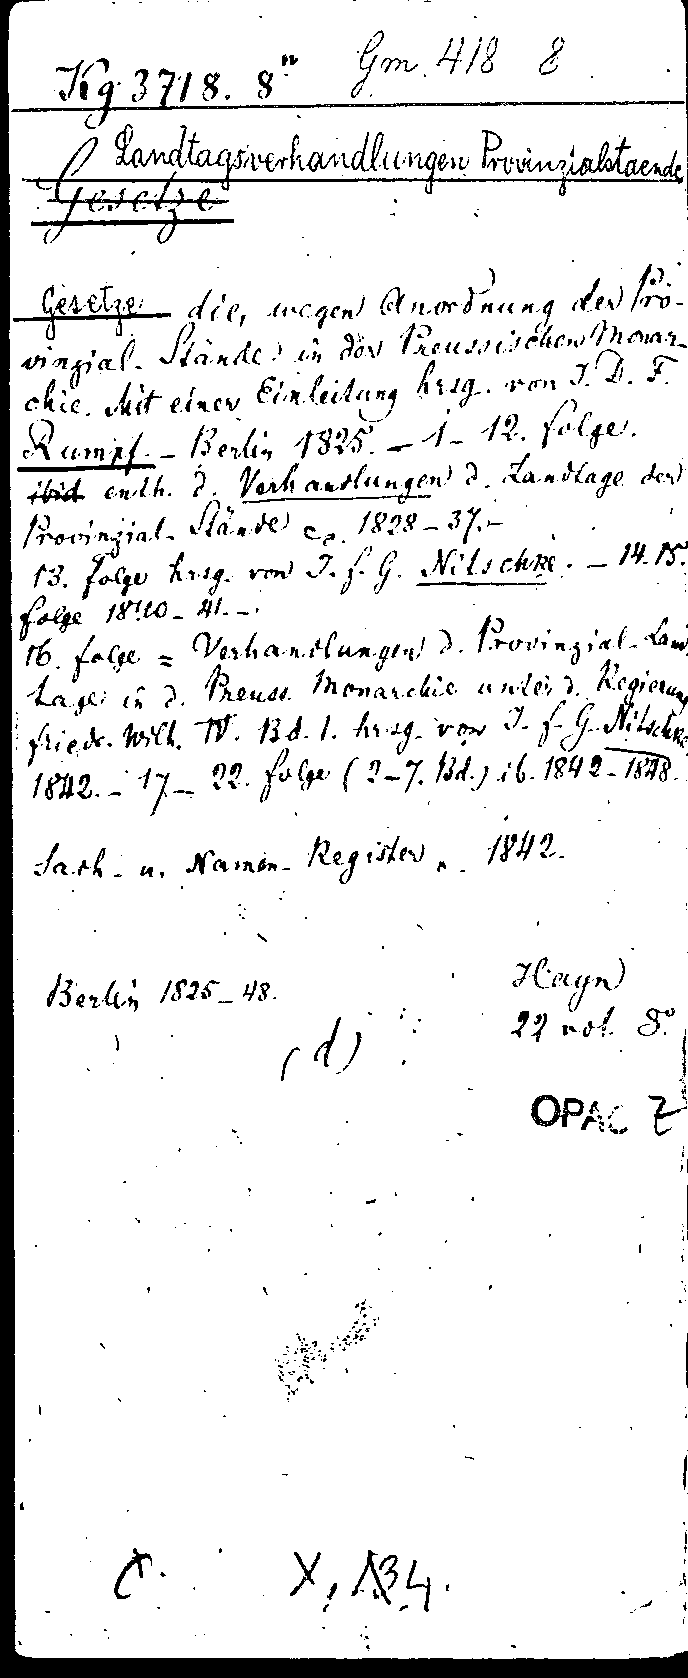 Kg 3718. 8° Gm. 418 8
Landtagsverhandlungen Provinzialstaende
Gesetze
Gesetze die, wegen Anordnung der Pro-
vinzial-Stände in der Preussischen Monar-
chie. Mit einer Einleitung hrsg. von J. D. F.
Rumpf. – Berlin 1825. – 1 – 12. Folge.
ibid enth. d. Verhandlungen d. Landtage der
Provinzial-Stände 1828 – 37. –
13. Folge hrsg. von J. F. G. Nitschke. – 14. 15.
Folge 1840 – 41. –
16. Folge = Verhandlungen d. Provinzial-Land
tage in d. Preuss. Monarchie unter d. Regierung
Friedr. Wilh. IV. Bd. 1. hrsg. von J. F. G. Nitschke
1842. – 17 – 22. Folge (2–7. Bd.) ib. 1842 – 1848.
Sach- u. Namen-Register 1842.
Berlin 1825 – 48. Hayn
22 vol. 8°
(d)
OPAC Z
X, 134.